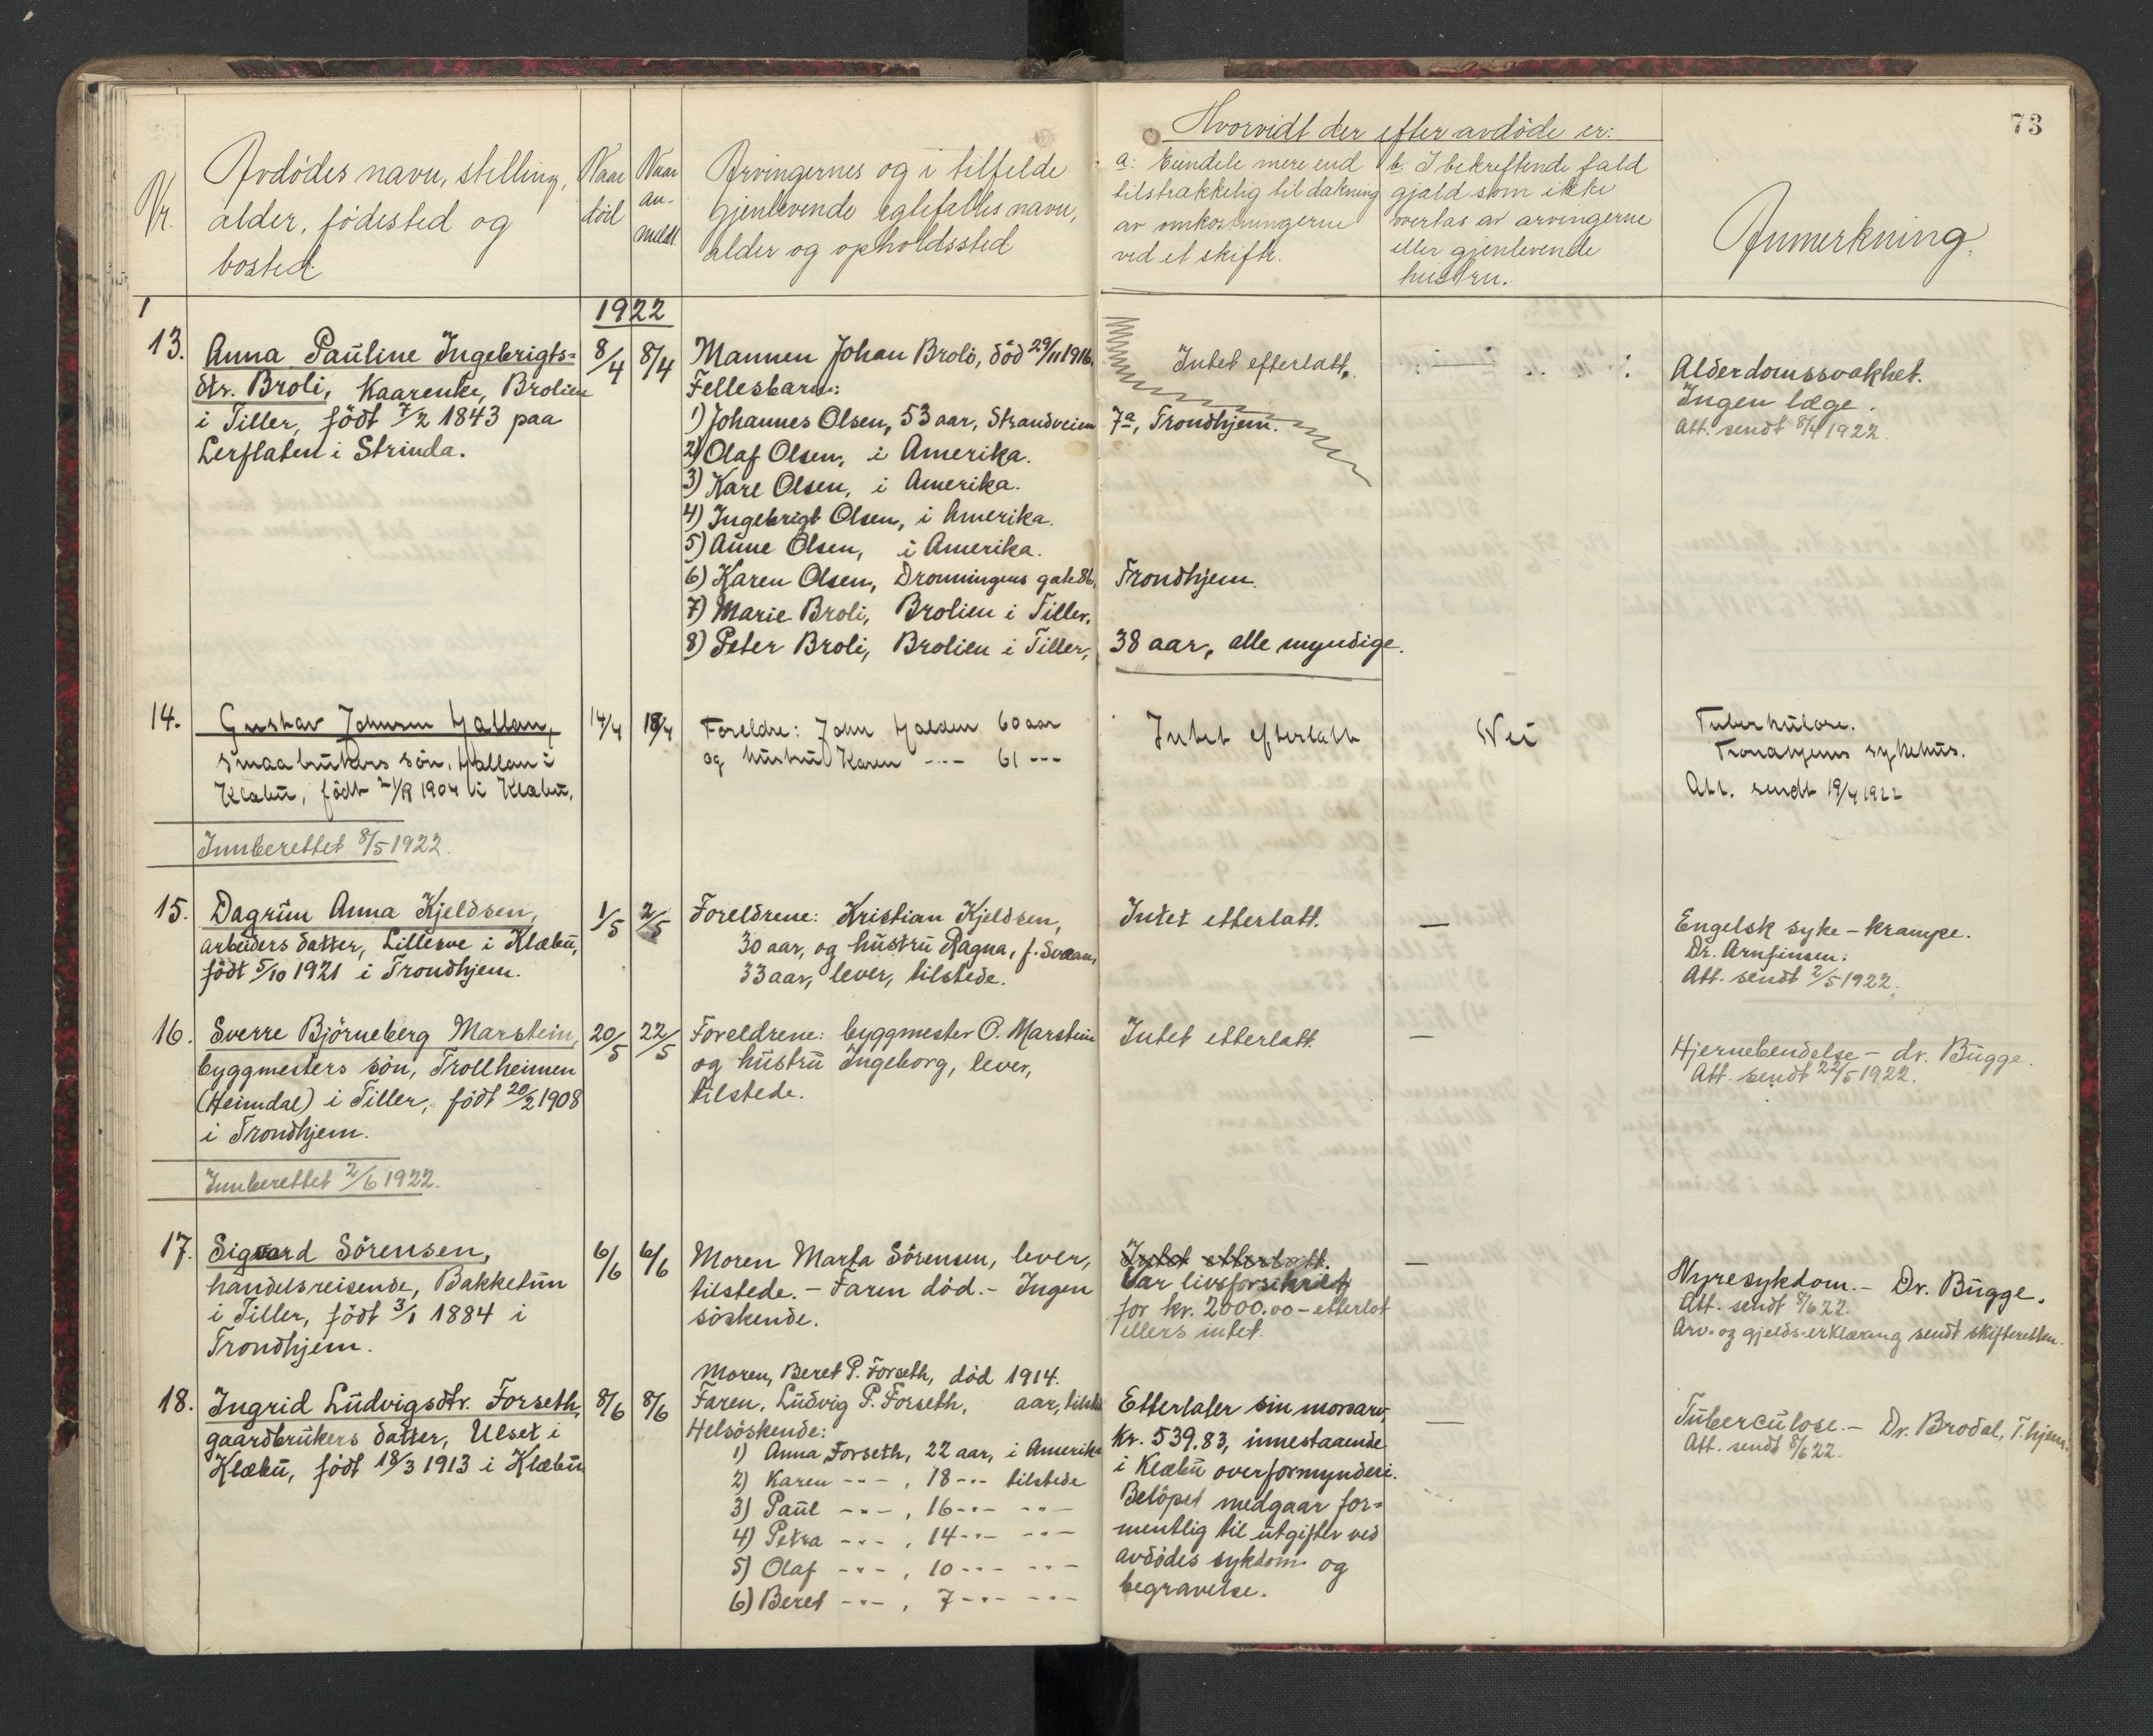 73
Nr.
Avdödes navn, stilling,
alder, födested og
bosted.
Naar
död
Naar
an-
meldt.
Arvingernes og i tilfelde
gjenlevende egtefælles navn,
alder og opholdssted
Hvorvidt der efter avdöde er:
a: Eiendele mere end
tilstrækkelig til dækning
av omkostningerne
ved et skifte.
b: I bekreftende fald
gjæld som ikke
overtas av arvingerne
eller gjenlevende
hustru.
Anmerkning.
1
1922
13.
Anna Pauline Ingebrigts=
dtr. Broli, Kaarenke, Brolien
i Tiller, födt 7/2 1843 paa
Lerflaten i Strinda.
8/4
8/4
Mannen Johan Broli, död 29/11 1916.
Fellesbarn:
1) Johannes Olsen, 53 aar, Strandveien 7a, Trondhjem.
2) Olaf Olsen, i Amerika.
3) Karl Olsen, i Amerika.
4) Ingebrigt Olsen, i Amerika.
5) Anne Olsen, i Amerika.
6) Karen Olsen, Dronningens gate 86, Trondhjem.
7) Marie Broli, Brolien i Tiller.
8) Peter Broli, Brolien i Tiller, 38 aar, alle myndige.
Intet efterlatt.
Alderdomssvakhet.
Ingen læge.
Att. sendt 8/4 1922.
14.
Gustav Johnsen Hallan,
smaabrukers sön, Hallan i
Klæbu, födt 21/9 1904 i Klæbu.
14/4
18/4
Foreldre: John Halden 60 aar
og hustru Karen -..- 61 -..-
Intet efterlatt
Nei
Tuberkulose.
Trondhjems sykehus.
Att. sendt 19/4 1922
Innberettet 8/5 1922.
15.
Dagrun Anna Kjeldsen,
arbeiders datter, Lilleeve i Klæbu,
födt 5/10 1921 i Trondhjem.
1/5
2/5
Foreldrene: Kristian Kjeldsen,
30 aar, og hustru Ragna, f. Svean,
33 aar, lever, tilstede.
Intet etterlatt.
—
Engelsk syke - krampe.
Dr. Arnfinsen.
Att. sendt 2/5 1922.
16.
Sverre Björneberg Marstein,
byggmesters sön, Trollheimen
(Heimdal) i Tiller, födt 20/2 1908
i Trondhjem.
20/5
22/5
Foreldrene: byggmester O. Marstein
og hustru Ingeborg, lever,
tilstede.
Intet etterlatt.
—
Hjernebendelse - dr. Bugge.
Att. sendt 22/5 1922.
Innberettet 2/6 1922.
17.
Sigvard Sörensen,
handelsreisende, Bakketun
i Tiller, födt 3/1 1884 i
Trondhjem.
6/6
6/6
Moren Marta Sörensen, lever,
tilstede. - Faren död. - Ingen
söskende.
Intet etterlatt.
Var livsforsikret
for kr. 2000.00 - etterlot
ellers intet.
—
Nyresykdom. - Dr. Bugge.
Att. sendt 8/6 22.
Arv- og gjelds-erklæring sendt skifteretten.
18.
Ingrid Ludvigsdtr. Forseth,
gaardbrukers datter, Ulset i
Klæbu, födt 18/3 1913 i Klæbu
8/6
8/6
Moren, Beret P. Forseth, död 1914.
Faren, Ludvig P. Forseth, aar, tilstede
Helsöskende:
1) Anna Forseth, 22 aar, i Amerika
2) Karen -..- , 18 -..- tilstede
3) Paul -..- , 16 -..- -..-
4) Petra -..- , 14 -..- -..-
5) Olaf -..- , 10 -..- -..-
6) Beret -..- , 7 -..- -..-
Etterlater sin morsarv,
kr. 539.83, innestaaende
i Klæbu overformynderi.
Belöpet medgaar for=
mentlig til utgifter ved
avdödes sykdom og
begravelse.
—
Tuberculose. - Dr. Brodal, T.hjem.
Att. sendt 8/6 22.